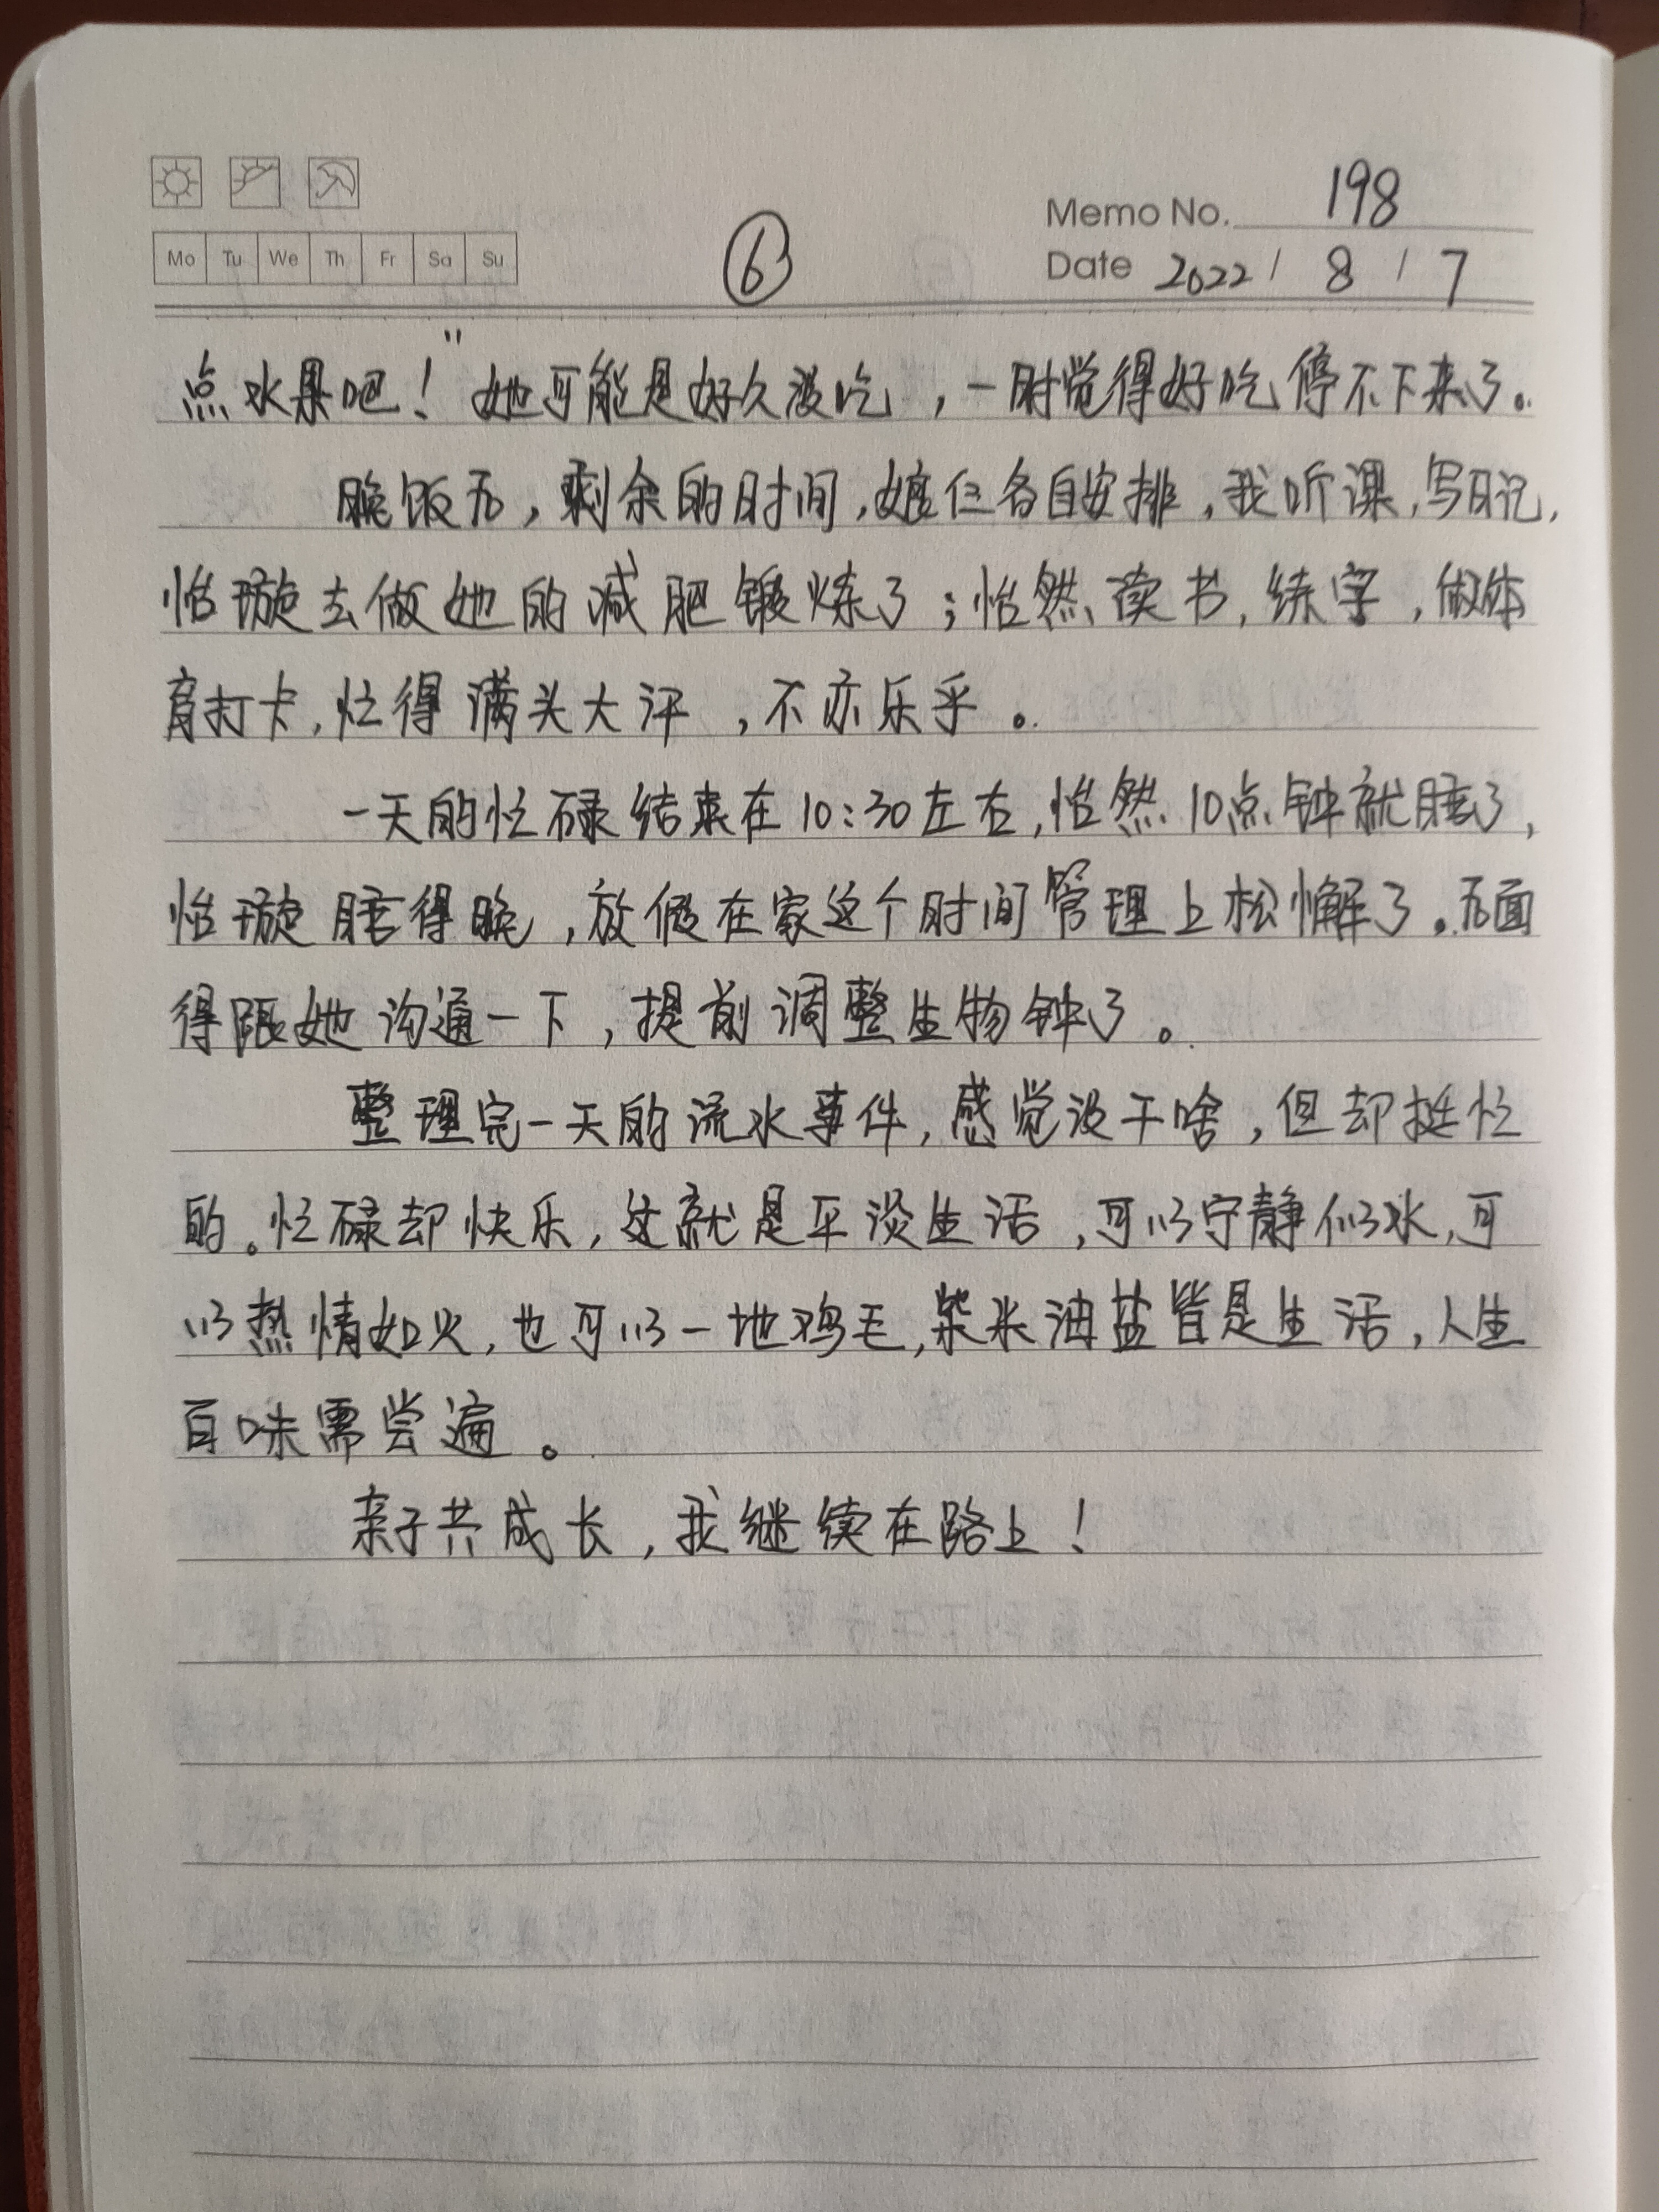 Memo No. 198
Mo Tu We Th Fr Sa Su
⑥
Date 2022 / 8 / 7
点水果吧！"她可能是好久没吃，一时觉得好吃停不下来了。
晚饭后，剩余的时间，娘仨各自安排，我听课，写日记，
怡璇去做她的减肥锻炼了；怡然读书，练字，做体
育打卡，忙得满头大汗，不亦乐乎。
一天的忙碌结束在10:30左右，怡然10点钟就睡了，
怡璇睡得晚，放假在家这个时间管理上松懈了。后面
得跟她沟通一下，提前调整生物钟了。
整理完一天的流水事件，感觉没干啥，但却挺忙
的。忙碌却快乐，这就是平淡生活，可以宁静似水，可
以热情如火，也可以一地鸡毛，柴米油盐皆是生活，人生
百味需尝遍。
亲子共成长，我继续在路上！